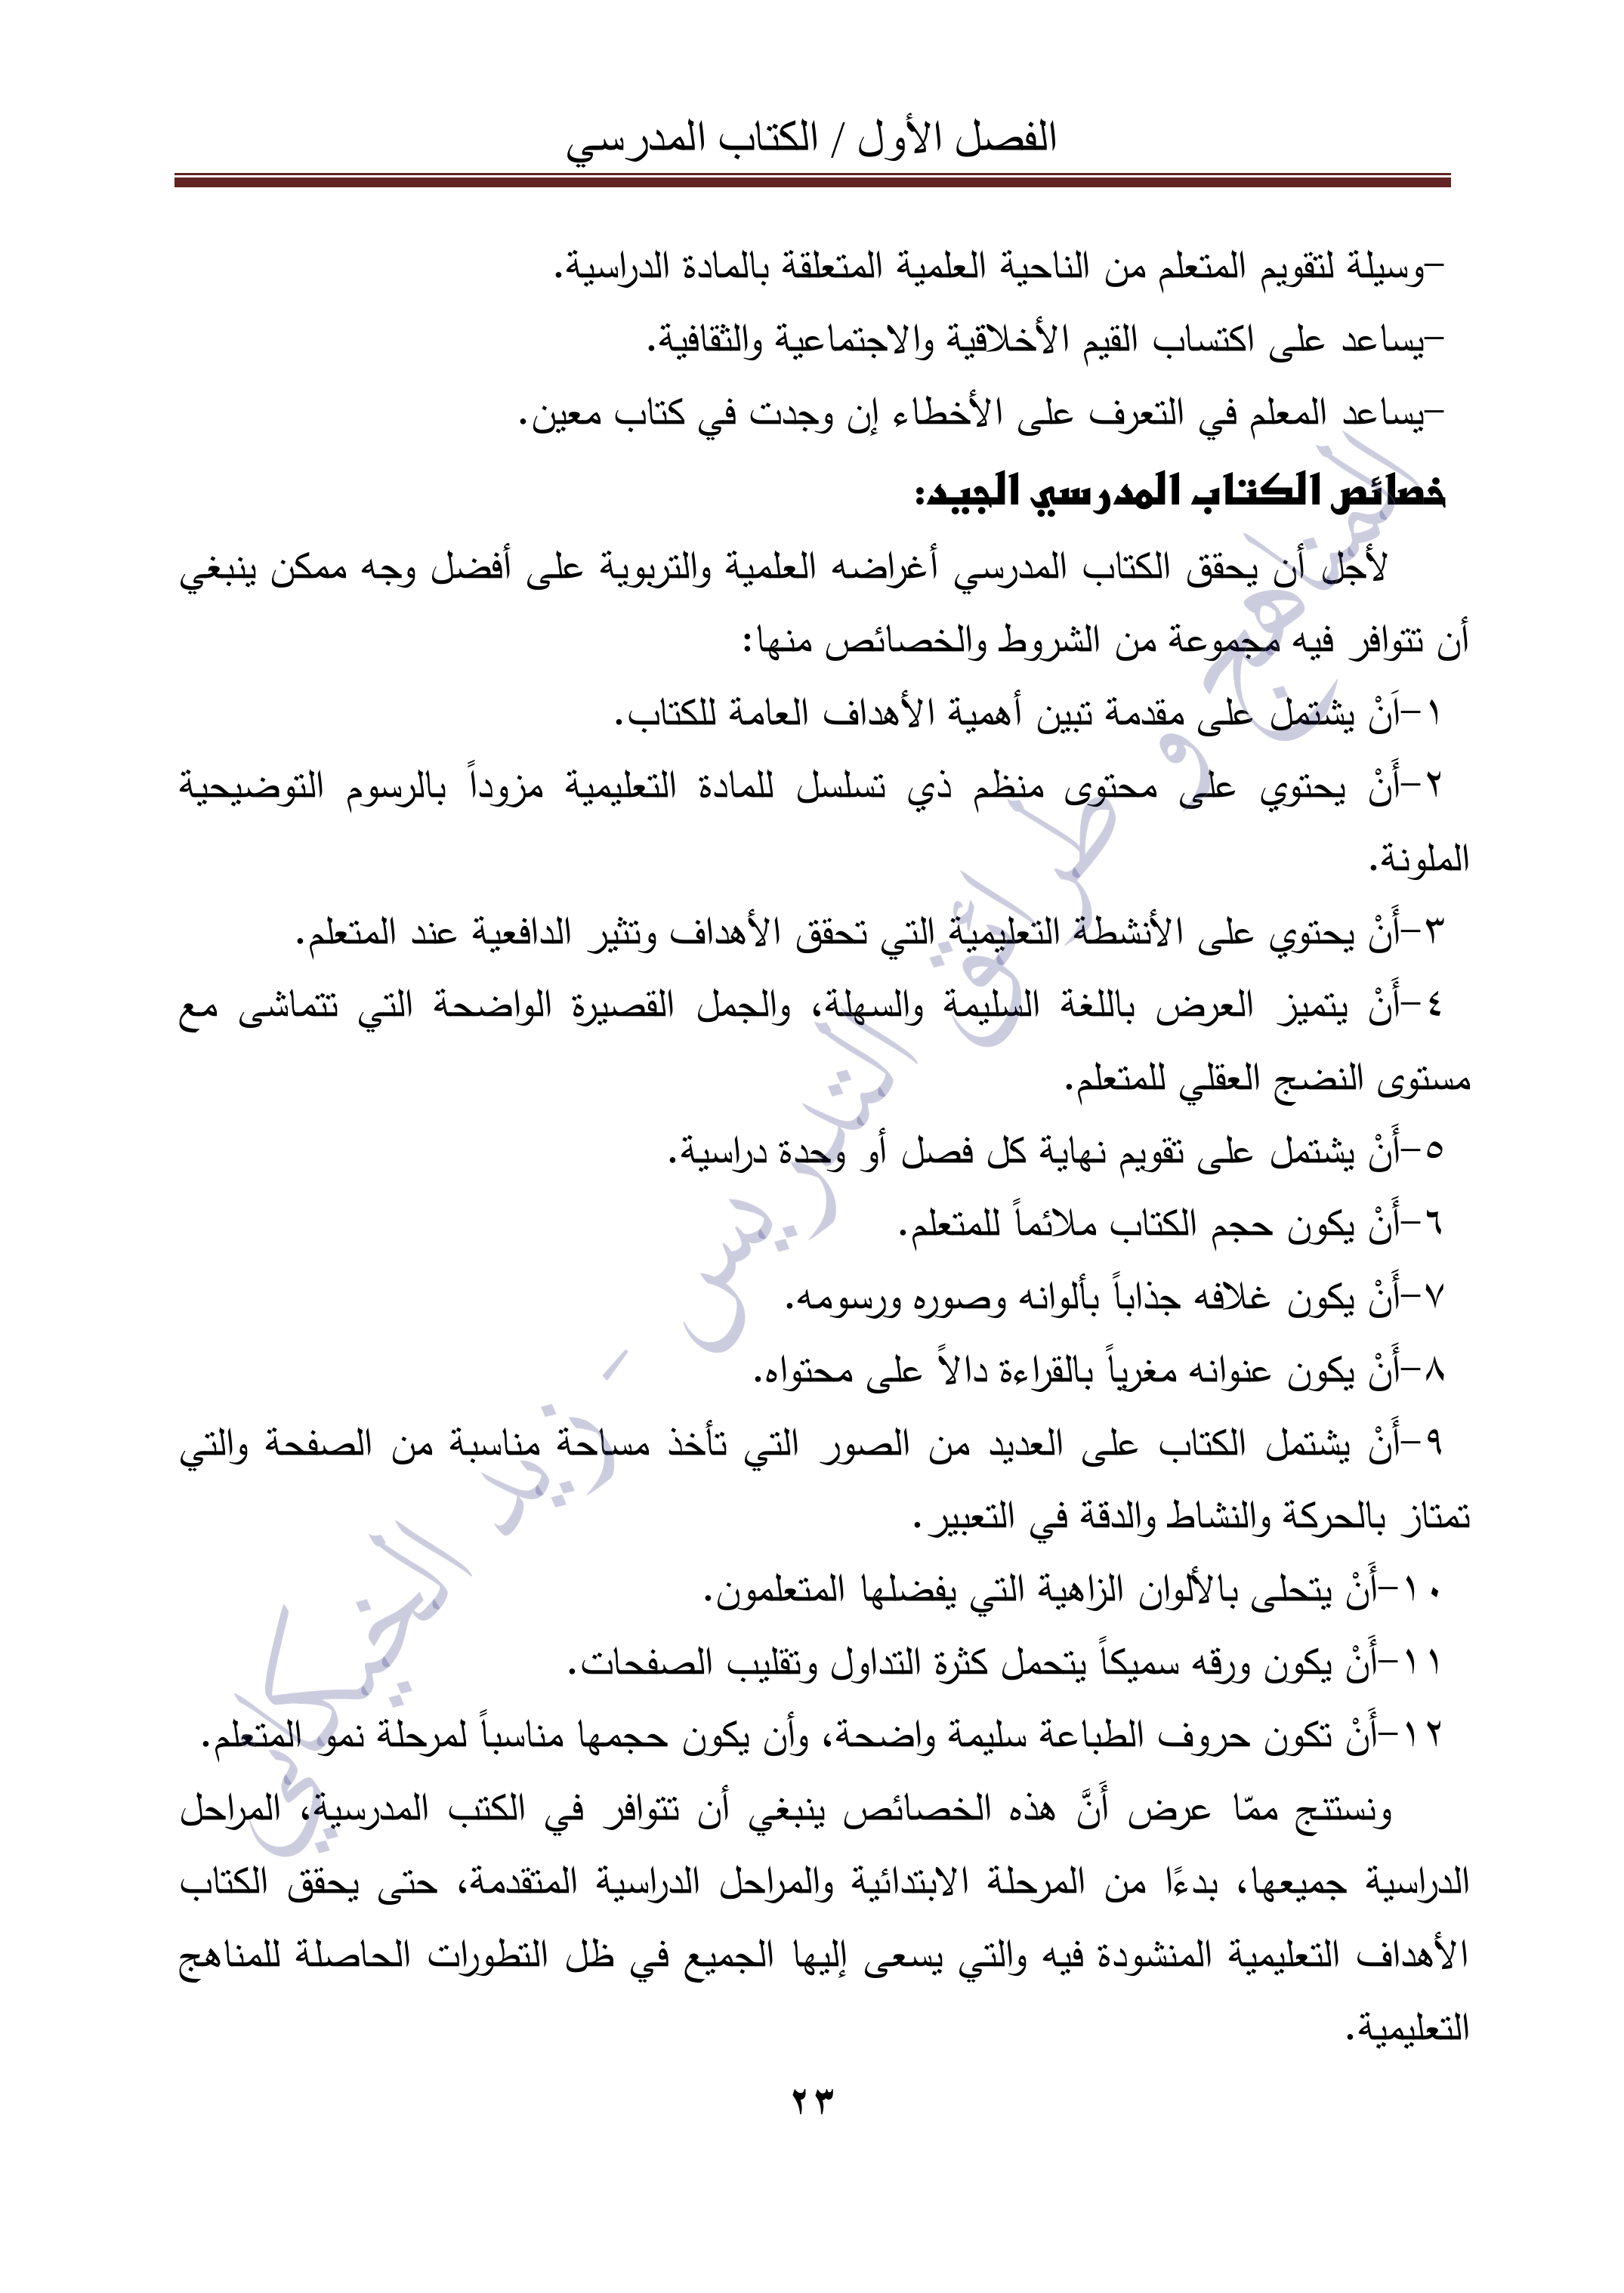 الفصل الأول / الكتاب المدرسي
-وسيلة لتقويم المتعلم من الناحية العلمية المتعلقة بالمادة الدراسية.
-يساعد على اكتساب القيم الأخلاقية والاجتماعية والثقافية.
-يساعد المعلم في التعرف على الأخطاء إن وجدت في كتاب معين.
خصائص الكتاب المدرسي الجيد:
لأجل أن يحقق الكتاب المدرسي أغراضه العلمية والتربوية على أفضل وجه ممكن ينبغي
أن تتوافر فيه مجموعة من الشروط والخصائص منها:
١-اَنْ يشتمل على مقدمة تبين أهمية الأهداف العامة للكتاب.
٢-أَنْ يحتوي على محتوى منظم ذي تسلسل للمادة التعليمية مزوداً بالرسوم التوضيحية
الملونة.
٣-أَنْ يحتوي على الأنشطة التعليمية التي تحقق الأهداف وتثير الدافعية عند المتعلم.
٤-أَنْ يتميز العرض باللغة السليمة والسهلة، والجمل القصيرة الواضحة التي تتماشى مع
مستوى النضج العقلي للمتعلم.
٥-أَنْ يشتمل على تقويم نهاية كل فصل أو وحدة دراسية.
٦-أَنْ يكون حجم الكتاب ملائماً للمتعلم.
٧-أَنْ يكون غلافه جذاباً بألوانه وصوره ورسومه.
٨-أَنْ يكون عنوانه مغرياً بالقراءة دالاً على محتواه.
٩-أَنْ يشتمل الكتاب على العديد من الصور التي تأخذ مساحة مناسبة من الصفحة والتي
تمتاز بالحركة والنشاط والدقة في التعبير.
١٠-أَنْ يتحلى بالألوان الزاهية التي يفضلها المتعلمون.
١١-أَنْ يكون ورقه سميكاً يتحمل كثرة التداول وتقليب الصفحات.
١٢-أَنْ تكون حروف الطباعة سليمة واضحة، وأن يكون حجمها مناسباً لمرحلة نمو المتعلم.
ونستنتج ممّا عرض أَنَّ هذه الخصائص ينبغي أن تتوافر في الكتب المدرسية، المراحل
الدراسية جميعها، بدءًا من المرحلة الابتدائية والمراحل الدراسية المتقدمة، حتى يحقق الكتاب
الأهداف التعليمية المنشودة فيه والتي يسعى إليها الجميع في ظل التطورات الحاصلة للمناهج
التعليمية.
٢٣
المناهج و طرائق التدريس - زيد الخيكاني